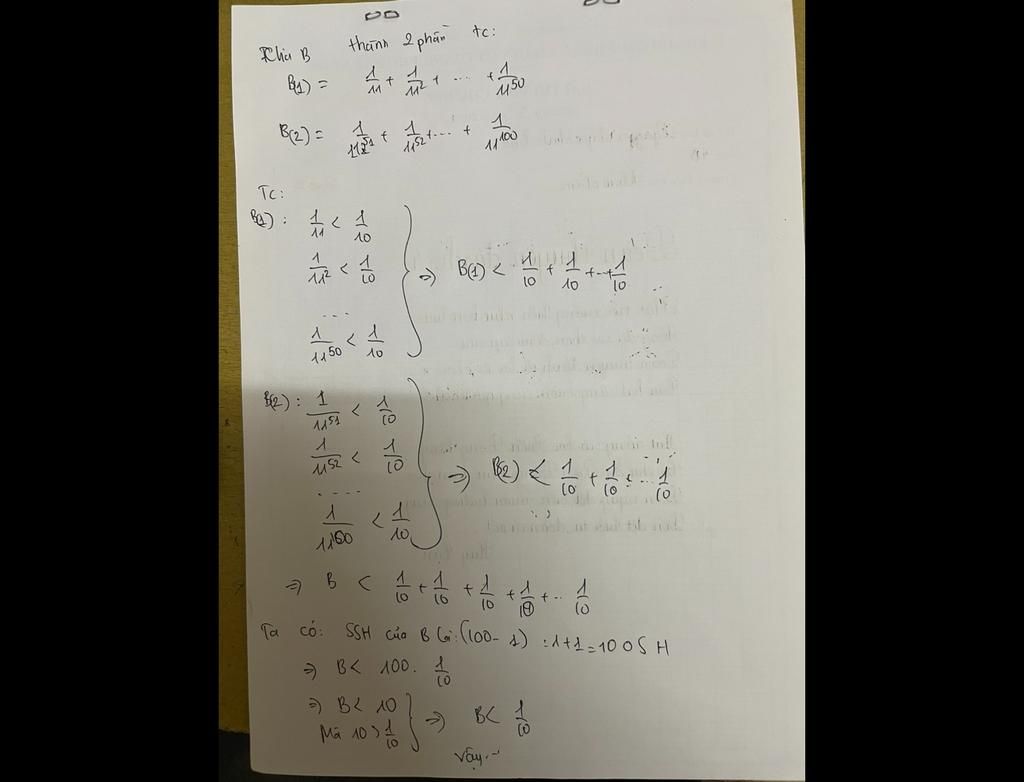 Chia B thành 2 phần tc:
B(1) = 1/11 + 1/11² + ... + 1/11⁵⁰
B(2) = 1/11⁵¹ + 1/11⁵² + ... + 1/11¹⁰⁰
Tc:
B(1): 1/11 < 1/10
1/11² < 1/10
...
1/11⁵⁰ < 1/10
⇒ B(1) < 1/10 + 1/10 + ... + 1/10
B(2): 1/11⁵¹ < 1/10
1/11⁵² < 1/10
....
< 1/10
⇒ B(2) < 1/10 + 1/10 + ... 1/10
⇒ B < 1/10 + 1/10 + 1/10 + 1/10 + ... 1/10
Ta có: SSH của B là: (100 - 1) : 1 + 1 = 100 SH
⇒ B < 100 . 1/10
⇒ B < 10
Mà 10 > 1/10
⇒ B < 1/10
Vậy...